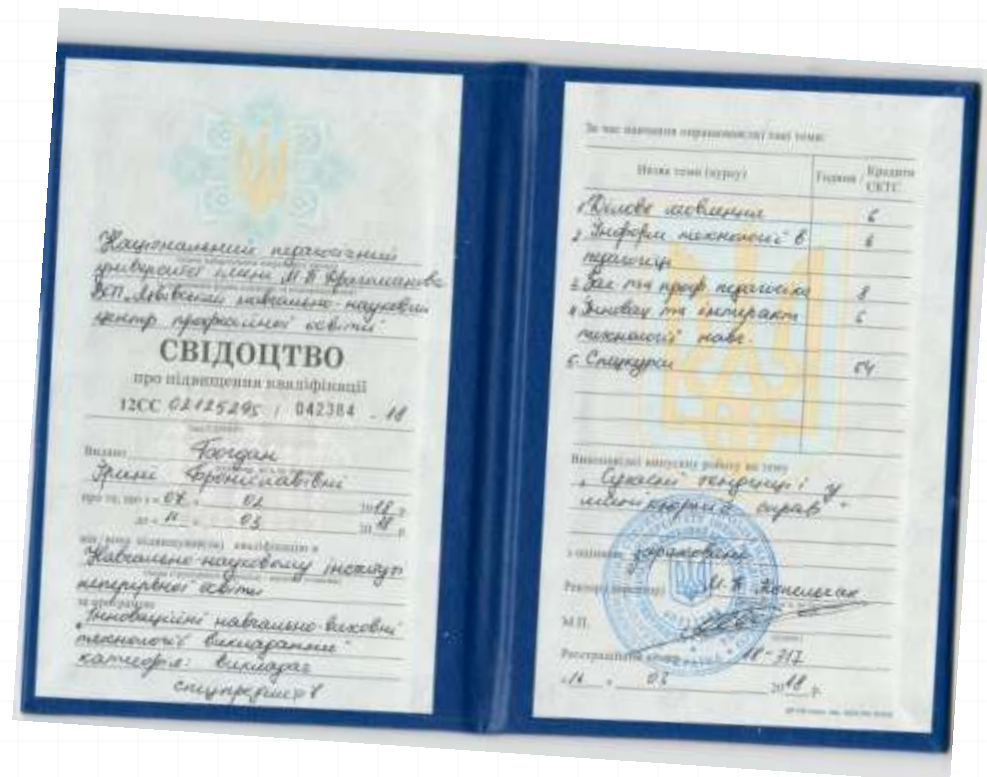 Національний педагогічний
університет імені М П Драгоманова
ВСП „Львівський навчально-науковий
центр професійної освіти"
СВІДОЦТВО
про підвищення кваліфікації
12СС 02125295 / 042384 - 18
Видано Богдан
Ірині Броніславівні
про те, що з « 07 » 02 2018 р.
до « 11 » 03 2018 р.
підвищував(ла) кваліфікацію в
Навчально-науковому інституті
неперервної освіти
за програмою
„Інноваційні навчально-виховні
технології викладання"
категорія: викладач
спецпредметів
За час навчання опрацював(ла) такі теми:
Назва теми (курсу) Години / Кредити ЄКТС
1 Ділове мовлення 6
2 Інформ технології в 6
педагогіці
3 Заг та проф педагогіка 8
4 Іновац та інтеракт 6
технології навч.
5. Спецкурси 64
Виконав(ла) випускну роботу на тему
„ Сучасні тенденції у
справі "
з оцінкою зараховано
Ректор (директор)
М.П.
Реєстраційний номер 18-317
03 2018 р.